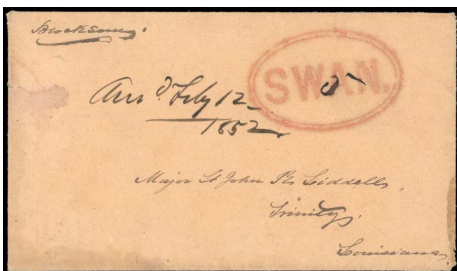 SWAN.
5
Ans'd Feby 12
1852
Major St John R. Liddell,
Trinity,
Louisiana,